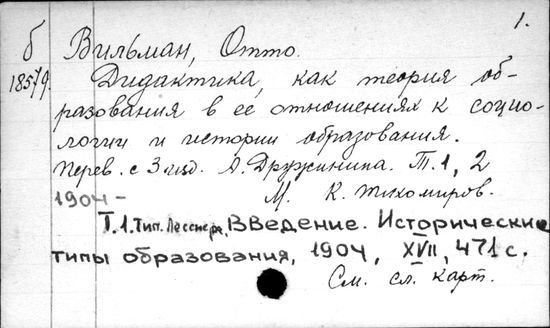 1.
б Вильман, Отто.
18579. Дидактика, как теория об-
разования в ее отношениях к социо-
логии и истории образования.
Перев. с 3 изд. А. Дружинина. Т. 1, 2
1904- М. К. Тихомиров.
Т.1. Тип. Лесснера, Введение. Исторические
типы образования, 1904, XVII, 471 с.
См. сл. карт.